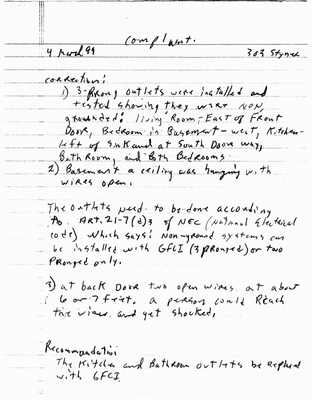 Complaint.
4 March 99 303 Styner
correction:
1) 3-prong outlets were installed and
tested showing they were NON,
grounded: living Room, East of Front
Door, Bedroom in Basement - west, Kitchen-
left of sink and at South Door way,
Bath Room, and Both Bedrooms.
2) Basement a ceiling was hanging with
wires open.
The outlets need to be done according
to ART. 21-7(d)3 of NEC (National Electrical
code) which says: Non-ground systems can
be installed with GFCI (3 pronged) or two
Pronged only.
3) at back Door two open wires at about
6 or 7 feet. a person could Reach
the wires and get shocked.
Recommendation:
The Kitchen and Bathroom outlets be replaced
with GFCI